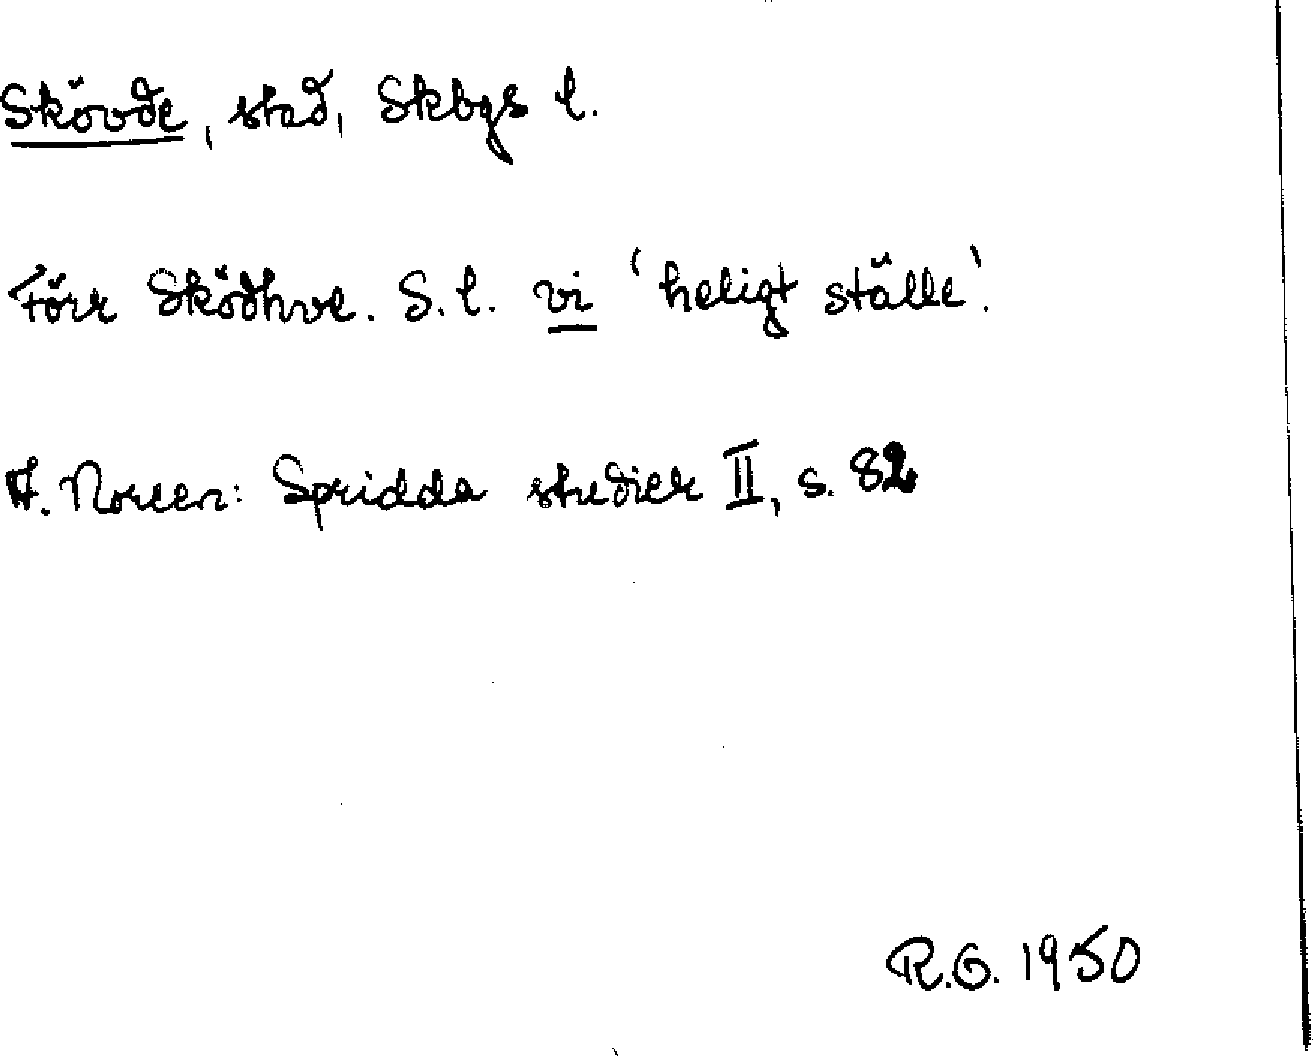 Skövde, stad, Skbgs l.
Förr Sködhve. S.l. vi 'heligt ställe'.
A. Noreen: Spridda studier II, s. 82
R.G. 1950